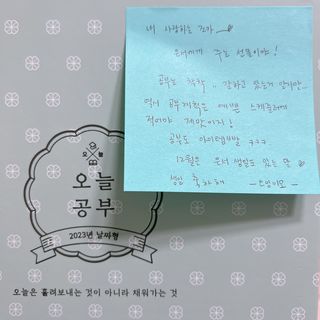 내 사랑하는 조카
은서에게 주는 선물이야!
공부는 착착.. 잘하고 있는거 알지만...
역시 공부계획은 예쁜 스케쥴러에
적어야 제맛이지!
공부도 아이템빨 ㅋㅋㅋ
12월은 은서 생일도 있는 달
생일 축하해
오늘
오늘
공부
2023년 날짜형
오늘은 흘려보내는 것이 아니라 채워가는 것